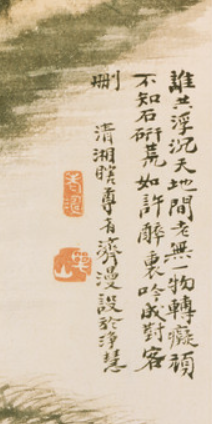 誰共浮沉天地間老無一物轉癡頑
不知石硏荒如許醉裏吟成對客
刪
清湘瞎尊者濟漫設於淨慧